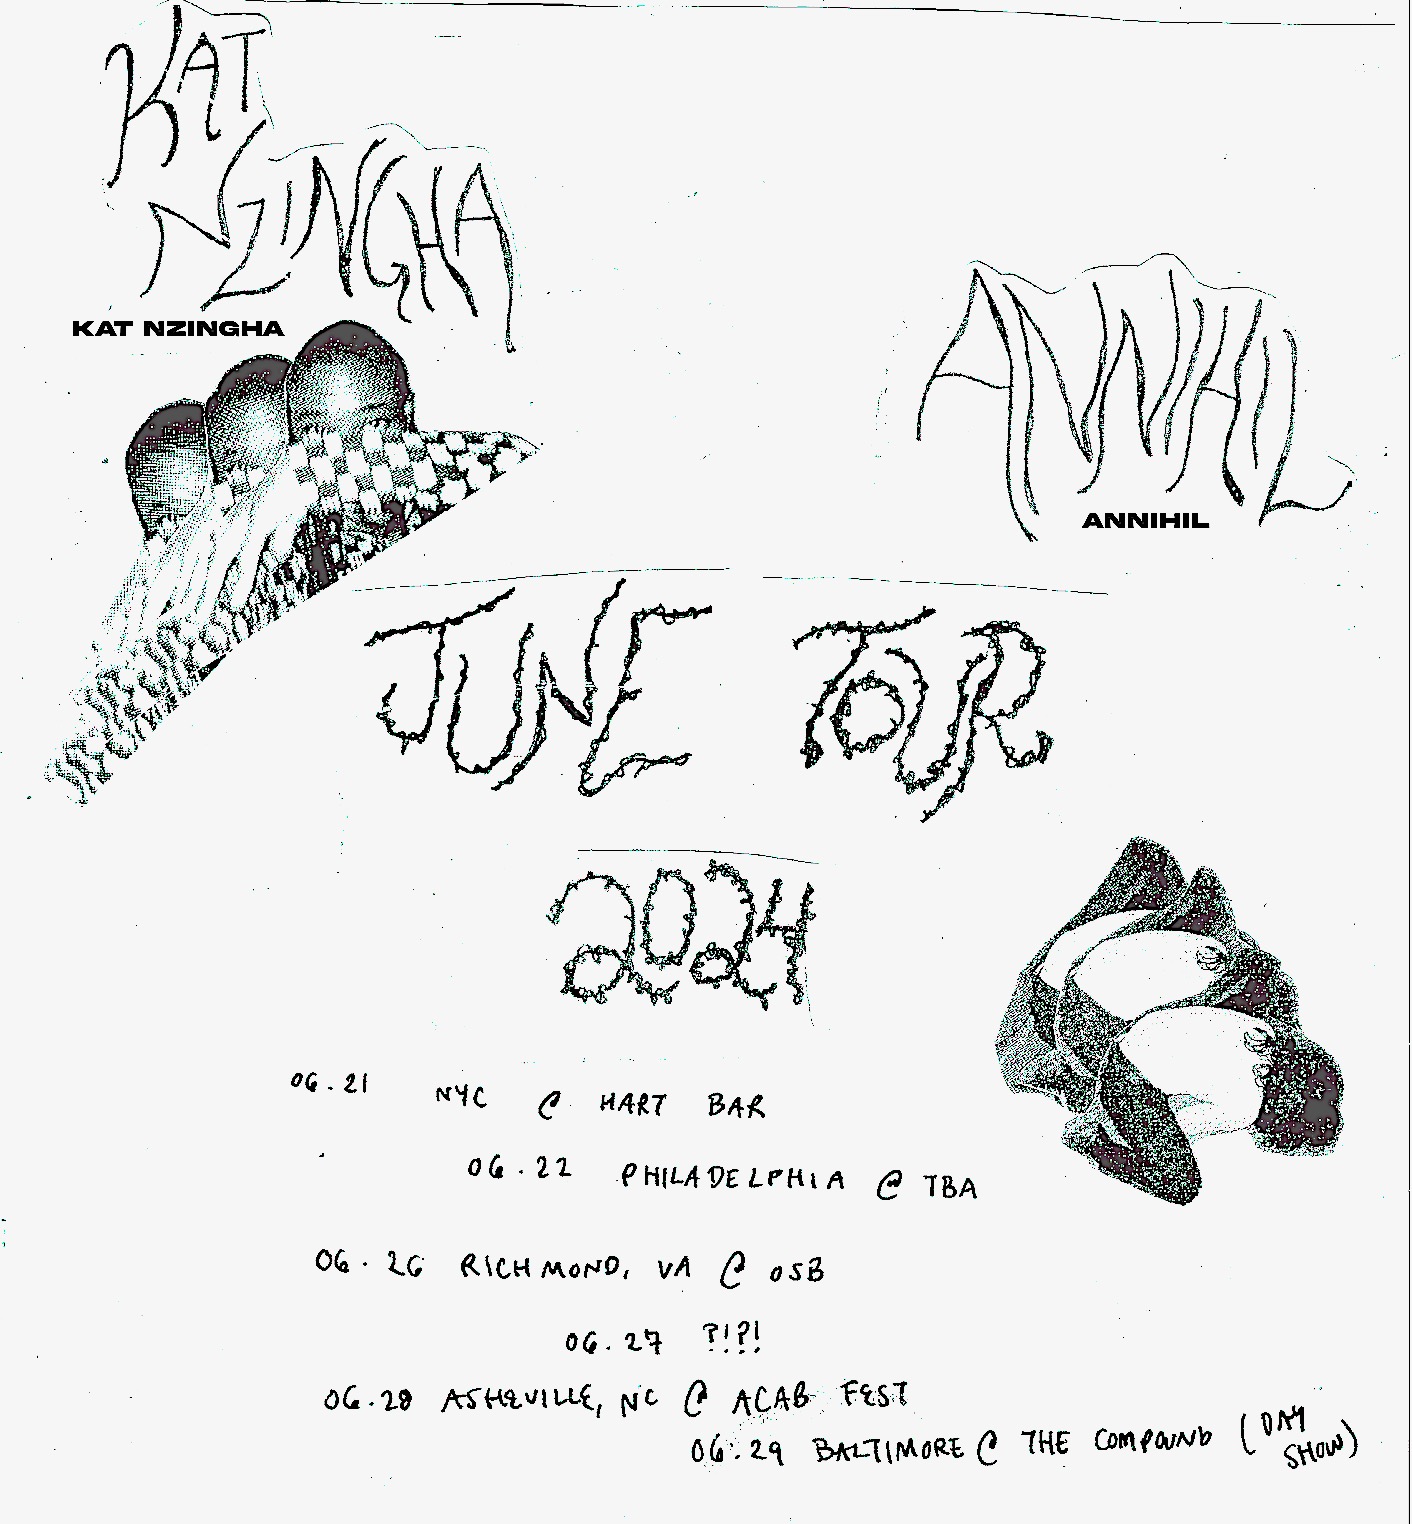 KAT
NZINGHA
KAT NZINGHA
ANNIHIL
ANNIHIL
JUNE TOUR
2024
06.21 NYC @ HART BAR
06.22 PHILADELPHIA @ TBA
06.26 RICHMOND, VA @ OSB
06.27 ?!?!
06.28 ASHEVILLE, NC @ ACAB FEST
06.29 BALTIMORE @ THE COMPOUND (DAY
SHOW)